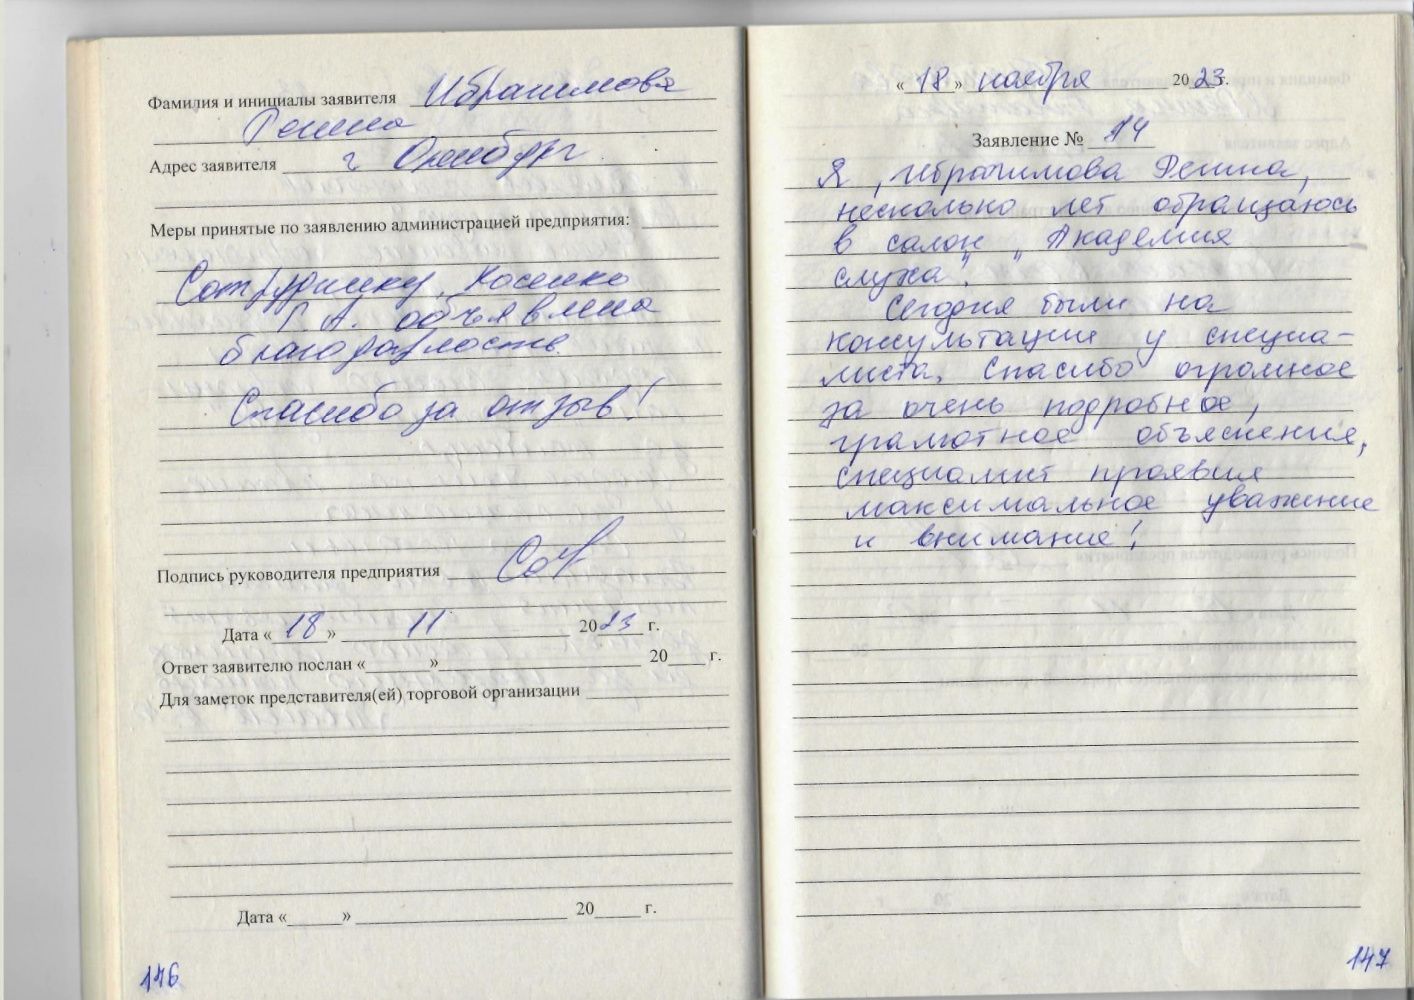 Фамилия и инициалы заявителя Ибрагимова
Регина
Адрес заявителя г Оренбург
Меры принятые по заявлению администрацией предприятия:
Сотруднику Косенко
Г. А. объявлена
благодарность.
Спасибо за отзыв!
Подпись руководителя предприятия
Дата « 18 » 11 2023 г.
Ответ заявителю послан «____»____ 20__ г.
Для заметок представителя(ей) торговой организации
Дата «____» ____ 20__ г.
146
« 18 » ноября 2023г.
Заявление № 14
Я, Ибрагимова Регина,
несколько лет обращаюсь
в салон „Академия
слуха".
Сегодня были на
консультации у специа-
листа. Спасибо огромное
за очень подробное,
грамотное объяснение,
специалист проявил
максимальное уважение
и внимание!
147